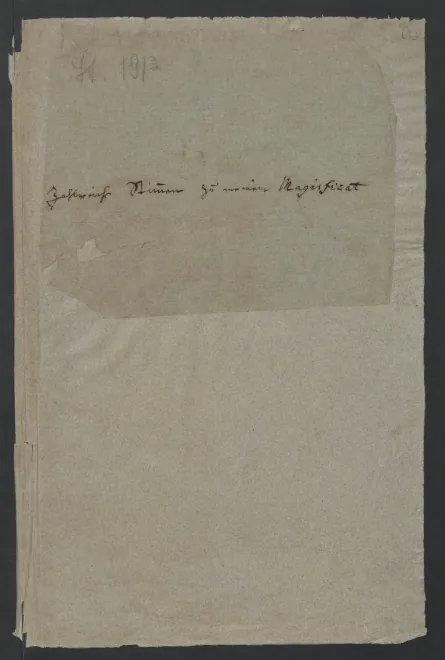 St. 191
Zahlreiche Stimmen zu meinem Magnificat